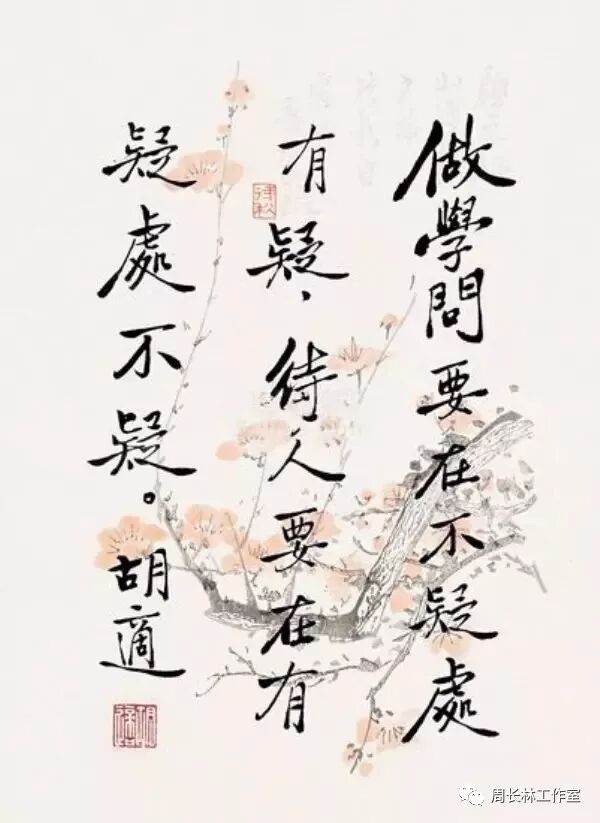 做學問要在不疑處
有疑、待人要在有
疑處不疑。胡適
周长林工作室